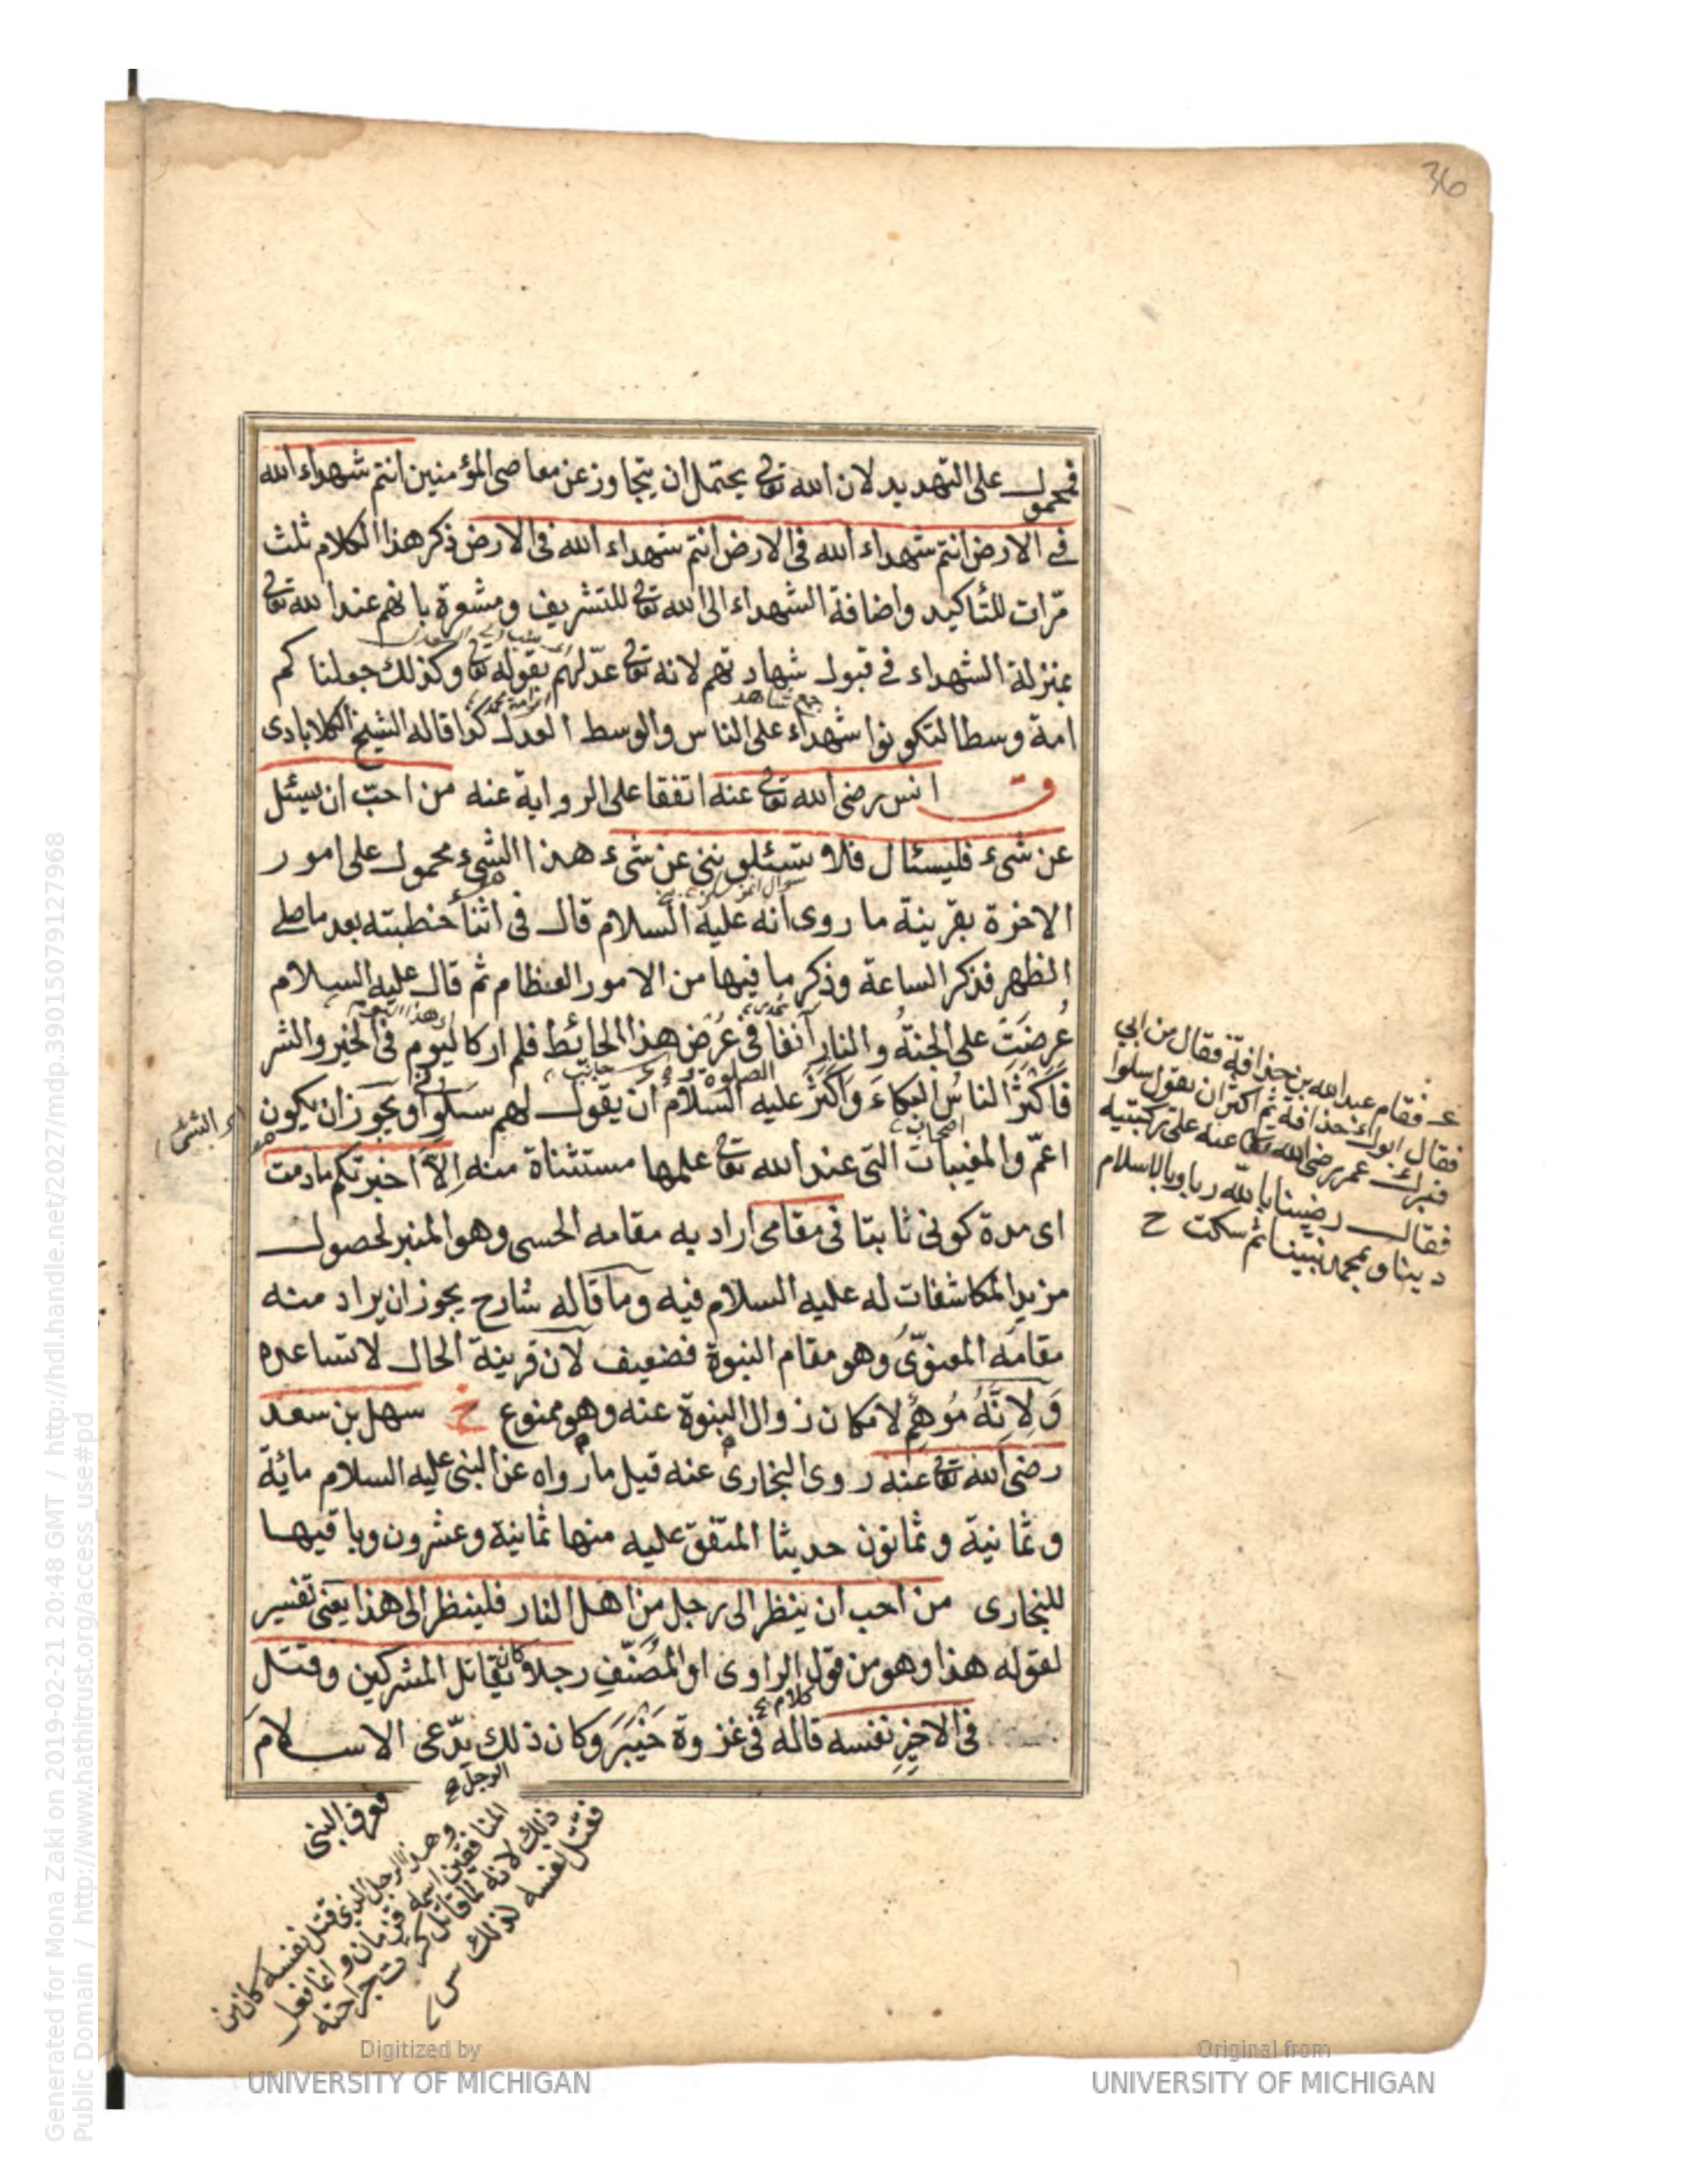 36
فمحمول على التهديد لان الله تعالى يحتمل ان يتجاوز عن معاصى المؤمنين انتم شهداء الله
فى الارض انتم شهداء الله فى الارض انتم شهداء الله فى الارض ذكر هذا الكلام ثلث
مرّات للتأكيد واضافة الشهداء الى الله تعالى للتشريف ومشعرة بانهم عند الله تعالى
بمنزلة الشهداء فى قبول شهادتهم لانه تعالى عدّلهم بقوله تعالى وكذلك جعلناكم
جمع شاهد
امة وسطا لتكونوا شهداء على الناس والوسط العدل كذا قاله الشيخ الكلابادى
ق انس رضى الله تعالى عنه اتفقا على الرواية عنه من احبّ ان يسئل
عن شىء فليسئال فلا تسئلوننى عن شىء هذا الشىء محمول على امور
الاخرة بقرينة ما روى انه عليه السلام قال فى اثناء خطبته بعد ما صلى
الظهر فذكر الساعة وذكر ما فيها من الامور العظام ثم قال عليه السلام
عُرِضَتِ على الجنةُ والنار آنفا فى عُرْض هذا الحائط فلم ار كاليوم فى الخير والشر
فَاَكْثَرَ الناسُ البكاءَ وَاَكْثَرَ عليه السلام ان يقول لهم سلوا ويجوز ان يكون
اعمّ والمغيبات التى عند الله تعالى علمها مستثناة منه اِلّا اخبرتكم ما دمت
اى مدة كونى ثابتا فى مقامى اراد به مقامه الحسى وهو المنبر لحصول
مزيد المكاشفات له عليه السلام فيه وما قاله شارح يجوز ان يراد منه
مقامه المعنوّى وهو مقام النبوة فضعيف لان قرينة الحال لا تساعده
وَلِاَنَّهُ مُوهِمٌ لامكان زوال النبوة عنه وهو ممنوع خ سهل بن سعد
رضى الله تعالى عنه روى البخارى عنه قيل ما رواه عن النبى عليه السلام مائة
وثمانية وثمانون حديثا المتفق عليه منها ثمانية وعشرون وباقيها
للبخارى من احب ان ينظر الى رجل من اهل النار فلينظر الى هذا يعنى تفسير
لقوله هذا وهو من قول الراوى او المُصَنّفِ رجلا كان يقاتل المشركين وقتل
فى الاخِرِ نفسه قاله فى غزوة خَيْبَرَ وكان ذلك يدّعى الاسلام
الرجل
فعرف النبى
فقام عبد الله بن حذافة فقال من ابى
فقال ابوك حذافة ثم اكثر ان يقول سلوا
فبرك عمر رضى الله تعالى عنه على ركبتيه
فقال رضينا بالله ربا وبالاسلام
دينا وبمحمد نبينا ثم سكت ح
وهذا الرجل الذى قتل نفسه كان من
المنافقين اسمه قزمان وانما فعل
ذلك لانه لما قاتل كثرت جراحته
فقتل نفسه لذلك
Generated for Mona Zaki on 2019-02-21 20:48 GMT / http://hdl.handle.net/2027/mdp.39015079127968
Public Domain / http://www.hathitrust.org/access_use#pd
Digitized by
UNIVERSITY OF MICHIGAN
Original from
UNIVERSITY OF MICHIGAN